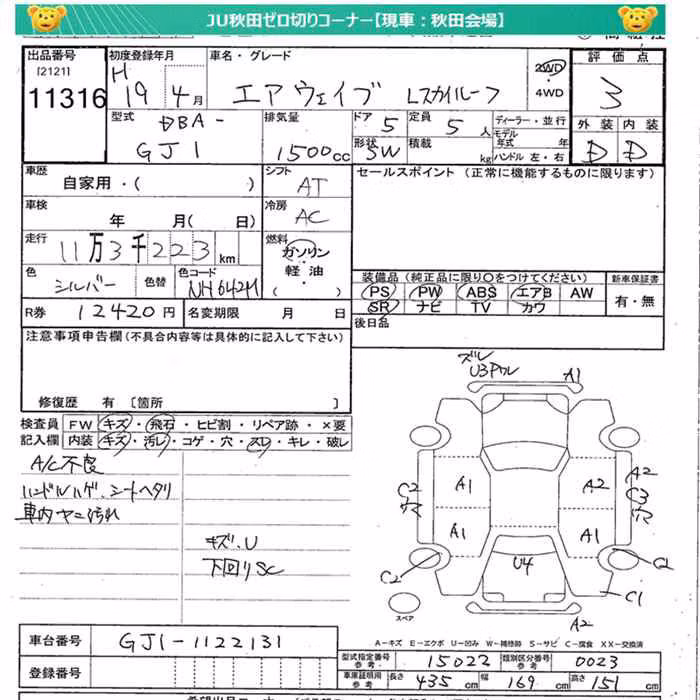 JU秋田ゼロ切りコーナー【現車：秋田会場】
出品番号 初度登録年月 車名・グレード 評価点
[2121] H
11316 19 4月 エアウェイブ Lスカイルーフ 2WD ・ 4WD 3
型式 排気量 ドア 5 定員 5人 ディーラー・並行 外装 内装
DBA- モデル年式 年
GJ1 1500cc 形状 SW 積載 kg ハンドル 左・右 D D
車歴 シフト セールスポイント(正常に機能するものに限ります)
自家用・( ) AT
車検 冷房
年 月( 日) AC
走行 燃料
11万3千223km ガソリン
軽油
・( )
色 色替 色コード 装備品(純正品に限り○をつけてください) 新車保証書
シルバー NH642M PS PW ABS エアB AW 有・無
SR ナビ TV カワ
R券 12420円 名変期限 月 日 後日品
注意事項申告欄(不具合内容等は具体的に記入して下さい)
修復歴 有 [箇所 ]
検査員 FW キズ・飛石・ヒビ割・リペア跡・×要
記入欄 内装 キズ・汚レ・コゲ・穴・スレ・キレ・破レ
A/C不良
ハンドルハゲ、シートヘタリ
車内ヤニ汚れ
キズ、U
下回りSC
ズレ
U3ワレ A1
C2 A1 A2 A2
C3
穴
A1 A1
C2 U4
C1
スペア A2
A−キズ E−エクボ U−凹み W−補修跡 S−サビ C−腐食 XX−交換済
車台番号 GJ1-1122131
型式指定番号 参考 15022 類別区分番号 参考 0023
登録番号 車庫証明用 参考 長さ 435cm 幅 169cm 高さ 151cm